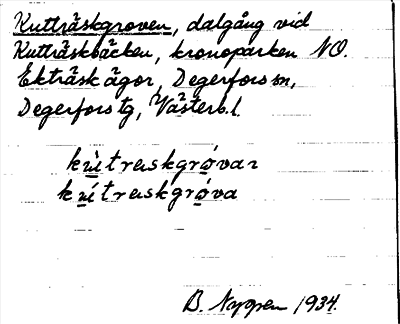 Kutträskgroven, dalgång vid
Kutträskbäcken, kronoparken NO.
Ekträsk ägor, Degerfors sn,
Degerfors tg, Västerb. l.
kùtraskgróvan
kùtraskgróva
B. Nygren 1934.